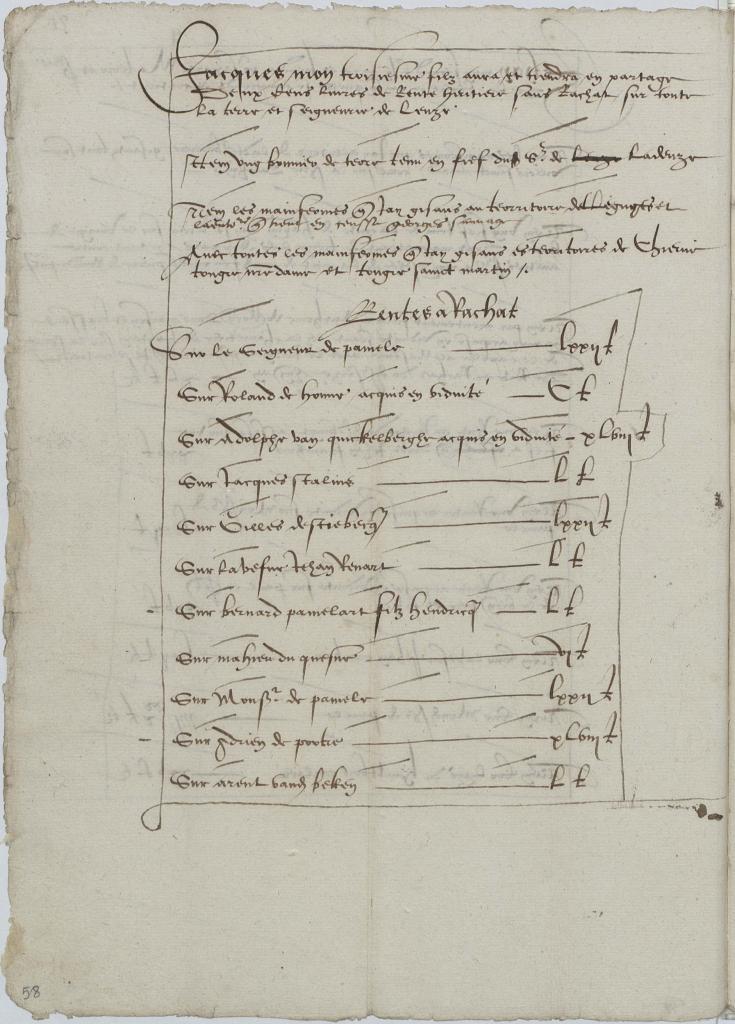 Jacques mon troisiesme filz aura et tiendra en partage
Deux cens livres de Rente heritiere sans Rachat sur toute
La terre et seigneurie de Leuze
Item ung bonnier de terre tenu en fief dud Sr de Leuze Ladeuze
Item les mainfermes q Jay gisans au terrictoire de Leignyes et
q tient en cense georges
Avec toutes les mainfermes q Jay gisans es territoires de Chierne
tongre nre dame et tongre sainct martin /.
Rentes a Rachat
Sur le Seigneur de pamele lxxii £
Sur Roland de home acquis en viduité C £
Sur Adolphe van quickelberghe acquis en viduité - xlviii £
Sur Jacques staline L £
Sur Gilles lxxii £
Sur la vefve Jehan Renart L £
- Sur bernard pamelart filz hendricq L £
Sur mahieu du quesne vi £
Sur Monsr de pamele lxxii £
- Sur Adrien de pootre xlviii £
Sur arent vand beken L £
58